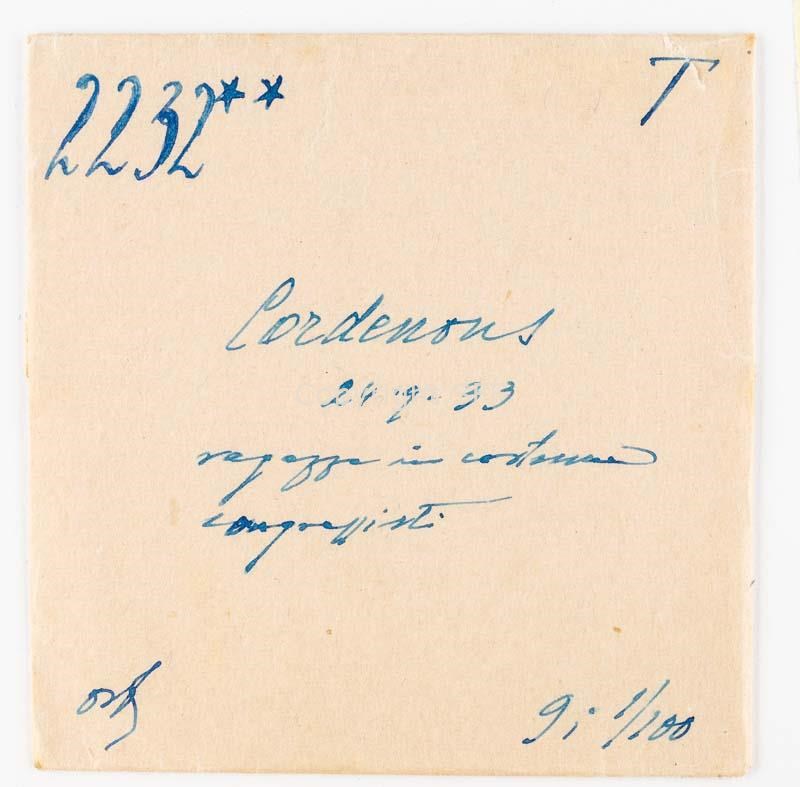 2232** T
Cordenons
24-9-33
ragazze in costume
congressisti
9; 1/100